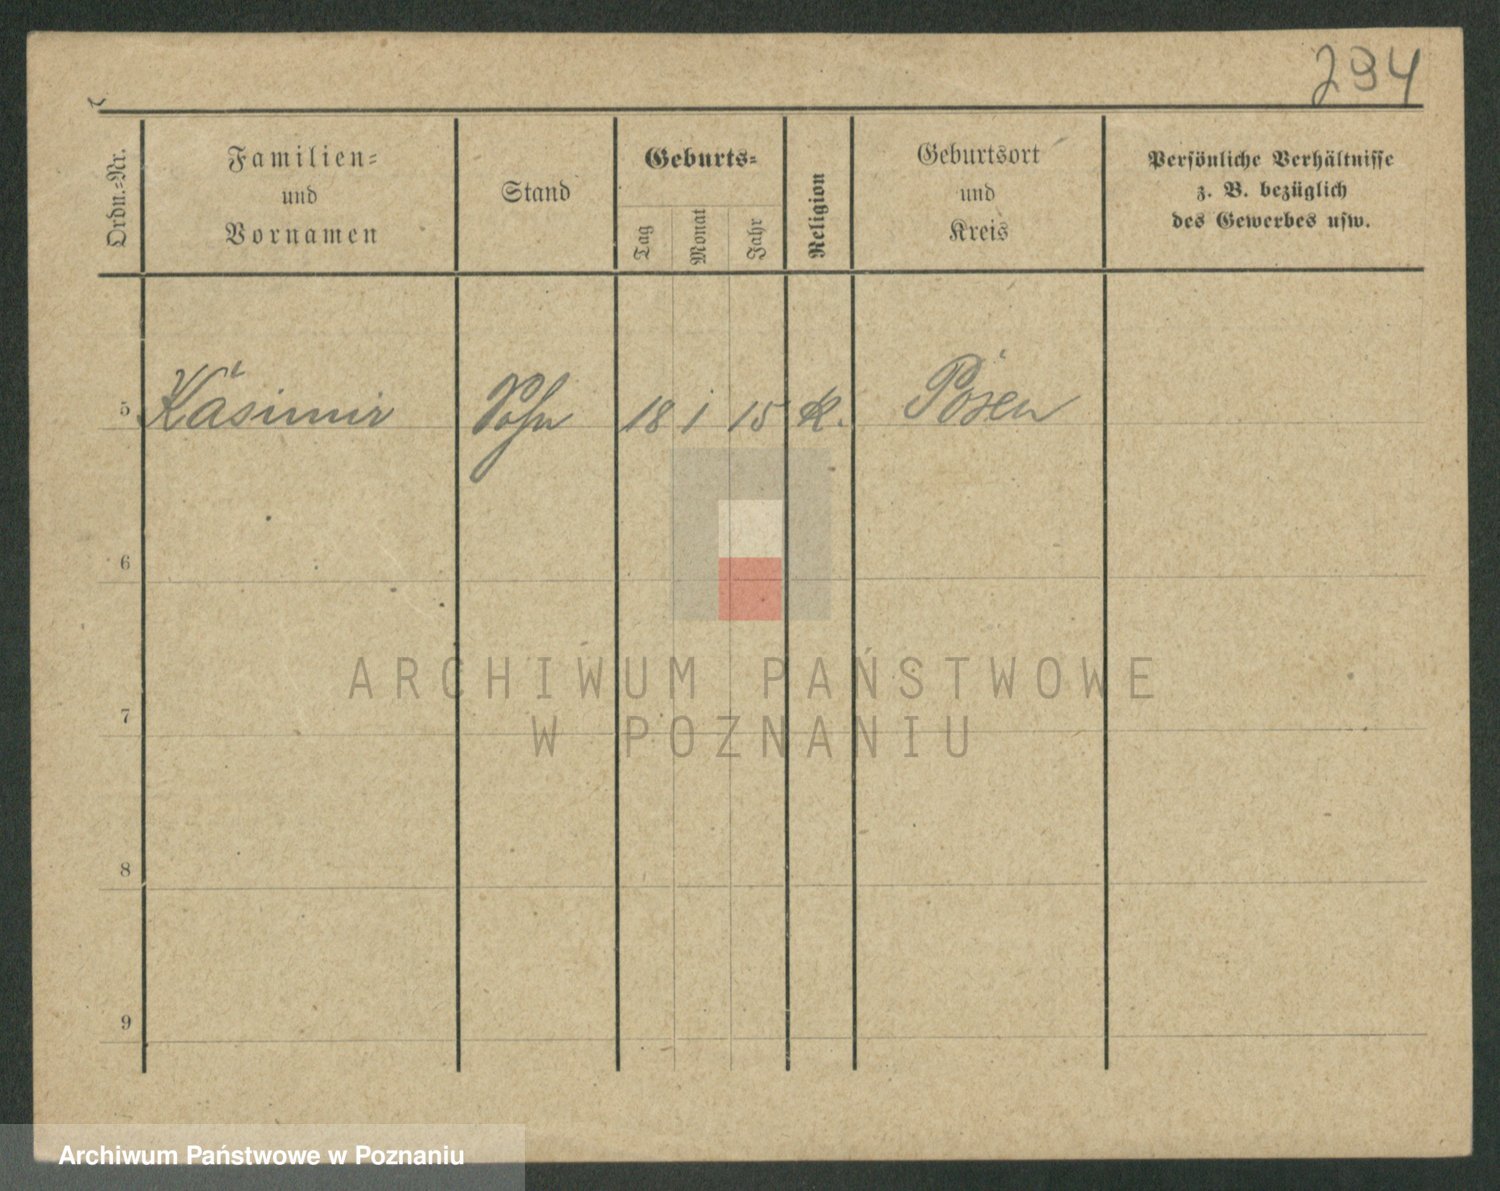 294
Ordn.=Nr.
Familien=
und
Vornamen
Stand
Geburts=
Tag
Monat
Jahr
Religion
Geburtsort
und
Kreis
Persönliche Verhältnisse
z. B. bezüglich
des Gewerbes usw.
5 Kasimir Sohn 18 1 15 k. Posen
6
7
8
9
ARCHIWUM PAŃSTWOWE
W POZNANIU
Archiwum Państwowe w Poznaniu